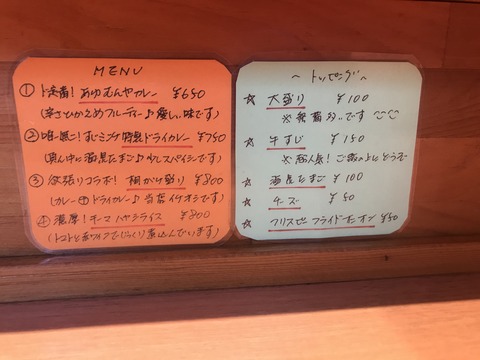 MENU
① ド定番! あゆむんやカレー ¥650
(辛さひかえめフルーティー♪優しい味です)
② 唯一無二! すじミンチ特製ドライカレー ¥750
(真ん中に温泉たまご♪少しスパイシーです)
③ 欲張りコラボ! 相がけ盛り ¥800
(カレー⊕ドライカレー♪当店イチオシです)
④ 濃厚! キーマハヤシライス ¥800
(トマトと赤ワインでじっくり煮込んでいます)
~トッピング~
☆ 大盛り ¥100
※ です
☆ 牛すじ ¥150
※ 人気! ご飯の上にどうぞ
☆ 温泉たまご ¥100
☆ チーズ ¥50
☆ クリスピーフライドオニオン ¥50